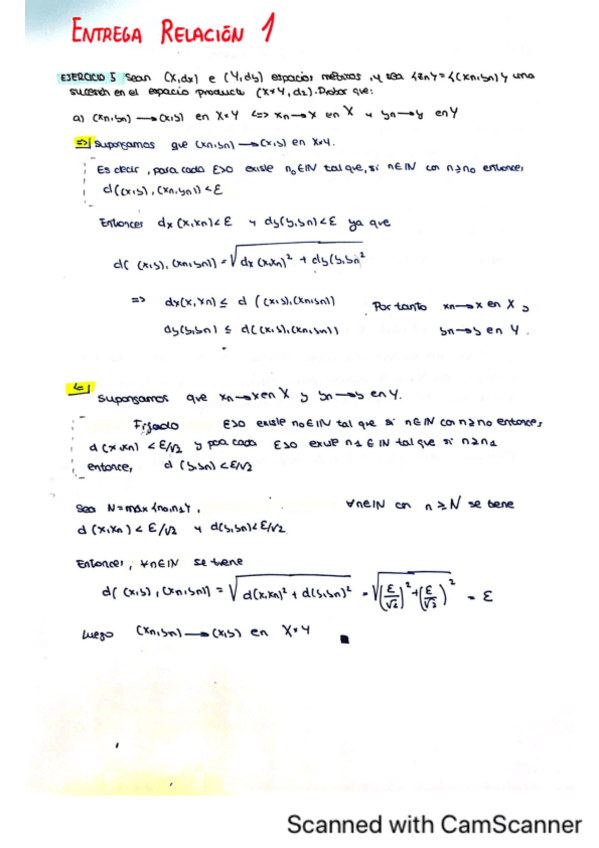 ENTREGA RELACIÓN 1
EJERCICIO 5 Sean (X,dx) e (Y,dy) espacios métricos, y sea {zn} = {(xn,yn)} una
sucesión en el espacio producto (X×Y, d2). Probar que:
a) (xn,yn) → (x,y) en X×Y <=> xn → x en X y yn → y en Y
=>| Supongamos que (xn,yn) → (x,y) en X×Y.
Es decir, para cada ε>0 existe n0∈IN tal que, si n∈IN con n≥n0 entonces
d((x,y), (xn,yn)) < ε
Entonces dx(x,xn) < ε y dy(y,yn) < ε ya que
d( (x,y), (xn,yn)) = √dx(x,xn)² + dy(y,yn)²
=> dx(x,xn) ≤ d((x,y),(xn,yn)) Por tanto xn → x en X y
dy(y,yn) ≤ d((x,y),(xn,yn)) yn → y en Y.
<=| Supongamos que xn → x en X y yn → y en Y.
Fijado ε>0 existe n0∈IN tal que si n∈IN con n≥n0 entonces
d(x,xn) < ε/√2 y para cada ε>0 existe n1∈IN tal que si n≥n1
entonces, d(y,yn) < ε/√2
Sea N = máx{n0,n1}, ∀n∈IN con n≥N se tiene
d(x,xn) < ε/√2 y d(y,yn) < ε/√2
Entonces, ∀n∈IN se tiene
d( (x,y), (xn,yn)) = √d(x,xn)² + d(y,yn)² = √(ε/√2)² + (ε/√2)² = ε
Luego (xn,yn) → (x,y) en X×Y ■
Scanned with CamScanner